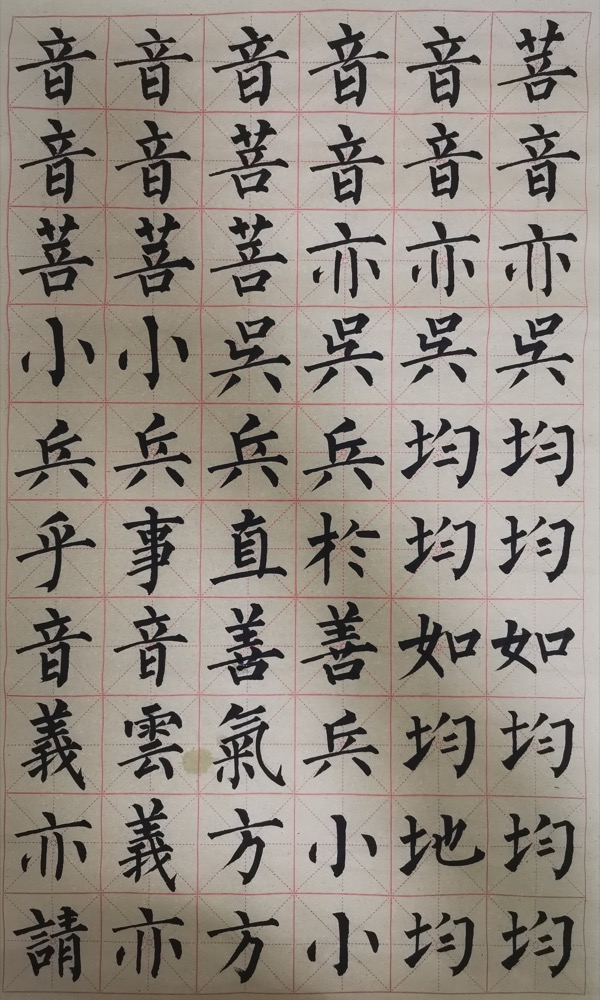 菩音亦吳均均如均均均
音音亦吳均均如均地均
音音亦吳兵於善兵小小
音菩菩吳兵直善氣方方
音音菩小兵事音雲義亦
音音菩小兵乎音義亦請